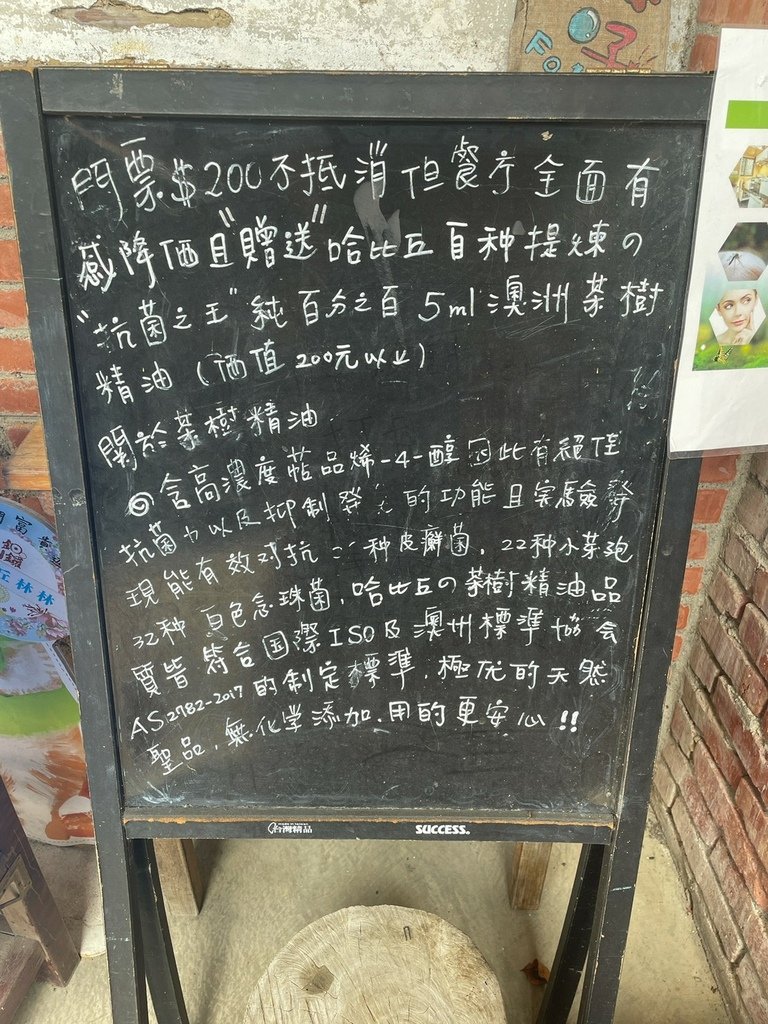 門票$200不抵消但餐厅全面有
感降価且"贈送"哈比丘自种提煉の
"抗菌之王"純百分之百5ml澳洲茶樹
精油(価值200元以上)
關於茶樹精油
◎含高濃度萜品烯-4-醇因此有絕佳
抗菌力以及抑制發炎的功能且実驗發
現能有效対抗二十种皮癬菌.22种小芽孢
32种白色念珠菌.哈比丘の茶樹精油品
質皆符合国際ISO及澳州標準協会
AS2782-2017的制定標準.極优的天然
聖品.無化学添加.用的更安心!!
MADE IN TAIWAN
台灣精品
SUCCESS.
在林林